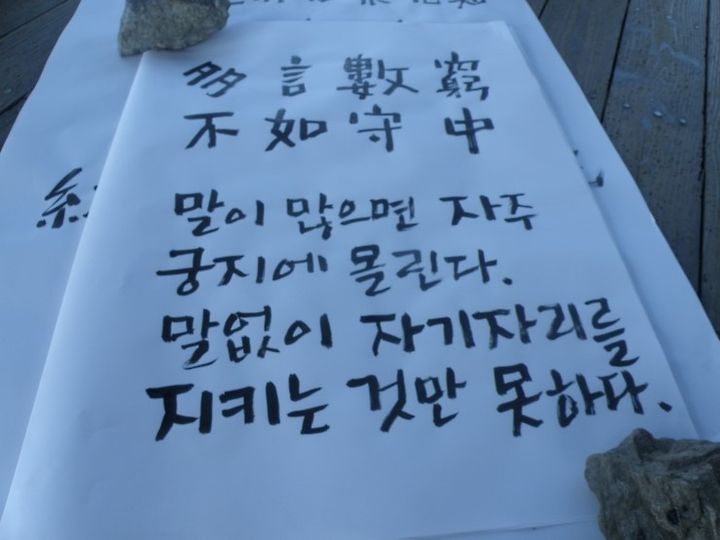 多言數窮
不如守中
말이 많으면 자주
궁지에 몰린다.
말없이 자기자리를
지키는 것만 못하다.